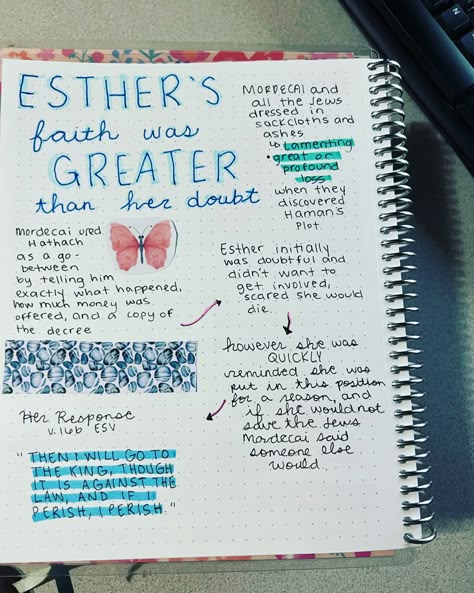 ESTHER'S
faith was
GREATER
than her doubt
MORDECAI and
all the Jews
dressed in
sackcloths and
ashes
↳ Lamenting
• great or
profound
loss
when they
discovered
Haman's
Plot.
Mordecai used
Hathach
as a go-
between
by telling him
exactly what happened,
how much money was
offered, and a copy of
the decree
Esther initially
was doubtful and
didn't want to
get involved,
scared she would
die.
however she was
QUICKLY
reminded she was
put in this position
for a reason, and
if she would not
save the Jews
Mordecai said
someone else
would.
Her Response
v. 16b ESV
"THEN I WILL GO TO
THE KING, THOUGH
IT IS AGAINST THE
LAW, AND IF I
PERISH, I PERISH."